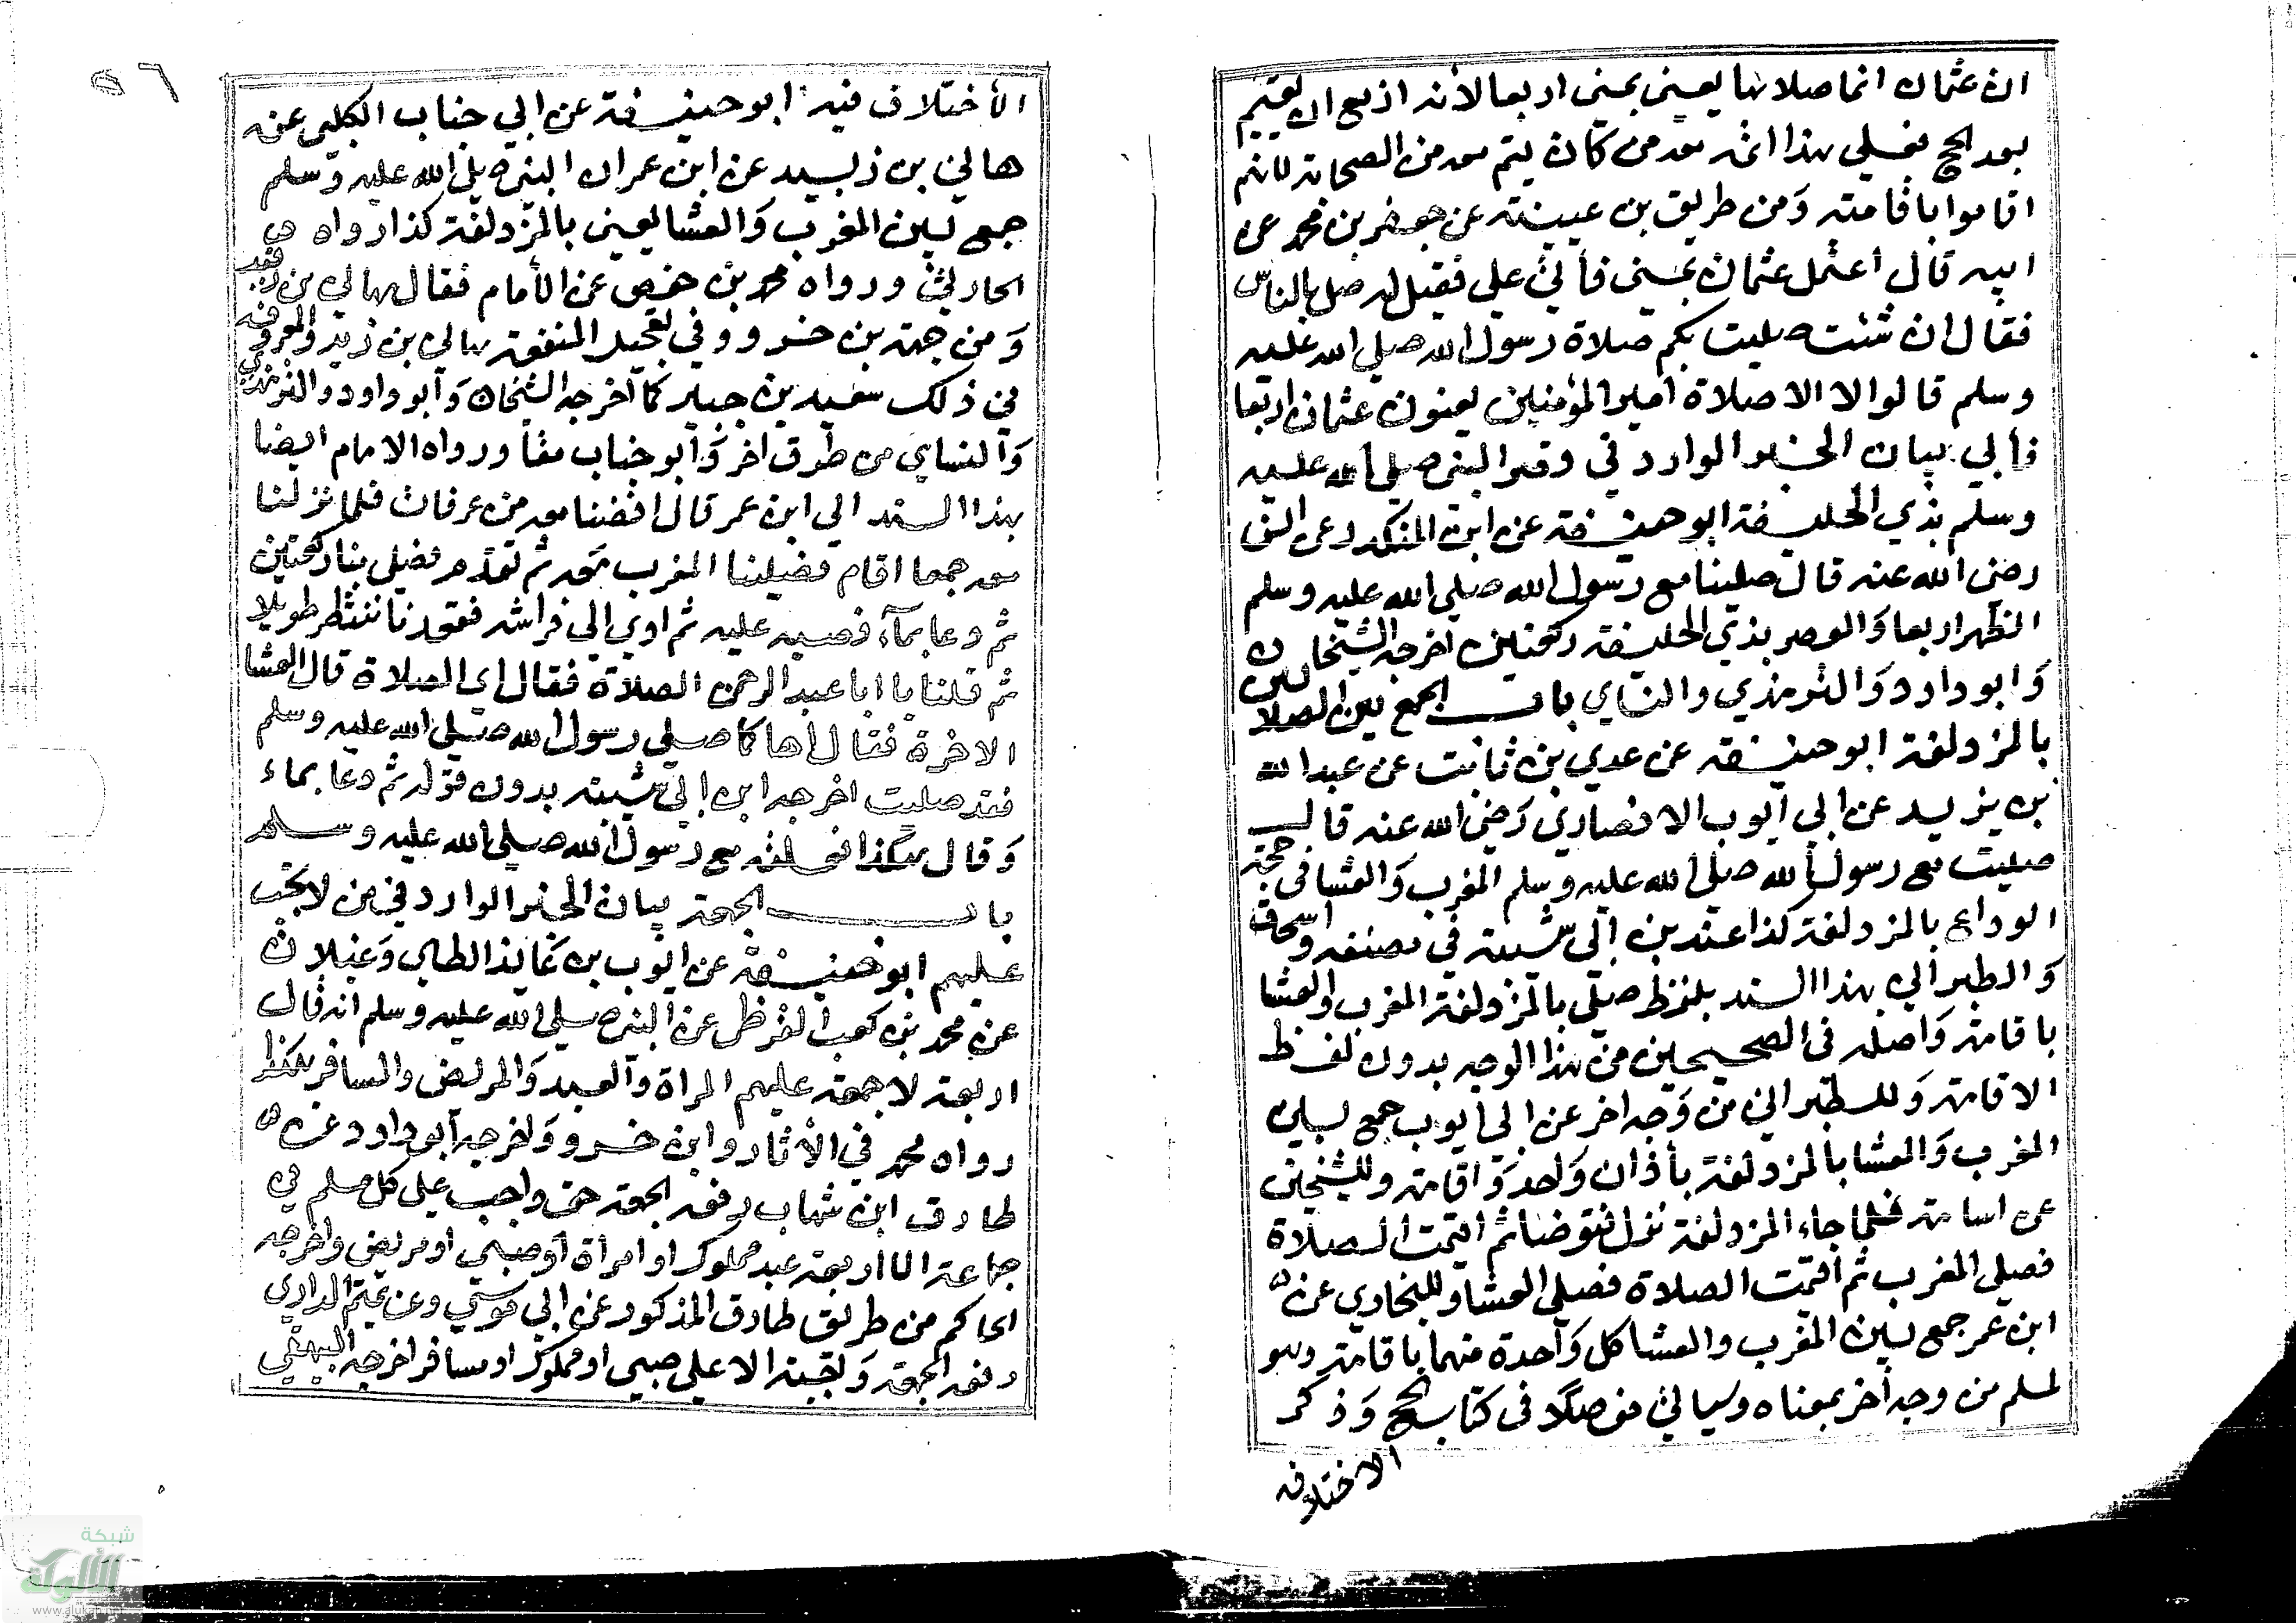 ان عثمان انما صلاها يعني بمنى اربعا لانه ازمع ان يقيم
بعد الحج فعلى هذا اتم معه من كان يتم معه من الصحابة لانهم
اقاموا باقامته وَمن طريق بن عيينة عن جعفر بن محمد عن
ابيه قال اعتل عثمان بمنى فأتي علي فقيل له صل بالناس
فقال ان شئت صليت بكم صلاة رسول الله صلى الله عليه
وسلم قالوا لا الا صلاة امير المؤمنين يعنون عثمان اربعا
فأبى بيان الخبر الوارد في وقصر النبي صلى الله عليه
وسلم بذي الحليفة ابو حنيفة عن ابن المنكدر عن انس
رضي الله عنه قال صلينا مع رسول الله صلى الله عليه وسلم
الظهر اربعا وَالعصر بذي الحليفة ركعتين اخرجه الشيخان
وَابو داود وَالترمذي والنساي باب الجمع بين الصلاتين
بالمزدلفة ابو حنيفة عن عدي بن ثابت عن عبد الله
بن يزيد عن ابي ايوب الانصاري رَضي الله عنه قال
صليت مع رسول الله صلى الله عليه وسلم المغرب وَالعشا في حجة
الوداع بالمزدلفة كذا عند بن ابي شيبة في مصنفه واسحاق
وَالطبراني بهذا السند بلفظ صلى بالمزدلفة المغرب والعشا
باقامة وَاصله في الصحيحين من هذا الوجه بدون لفظ
الاقامة وَللطبراني من وَجه اخر عن ابي ايوب جمع بين
المغرب وَالعشا بالمزدلفة بأذان وَاحد وَاقامة وللشيخين
عن اسامة فلما جاء المزدلفة نزل فتوضا ثم اقيمت الصلاة
فصلى المغرب ثم اقيمت الصلاة فصلى العشا وللبخاري عن
ابن عمر جمع بين المغرب والعشا كل وَاحدة منهما باقامة وهو
لمسلم من وجه أخر بمعناه وسياتي مفصلا في كتاب الحج وَذكر
الاختلاف
٥٦
الأختلاف فيه ابو حنيفة عن ابي جناب الكلبي عن
هاني بن زبيد عن ابن عمر ان النبي صلى الله عليه وَسلم
جمع بين المغرب وَالعشا يعني بالمزدلفة كذا رواه
الحارثي ورواه محمد بن حفص عن الأمام فقال هاني بن
وَمن جهة بن خسرو وفي تعجيل المنفعة هاني بن زيد والمعروف
في ذلك سعيد بن جبير كما اخرجه الشيخان وَأبو داود والترمذي
وَالنساي من طرق اخر وَأبو جناب ورواه الامام ايضا
بهذا السند الى ابن عمر قال افضنا معه من عرفات فلما نزلنا
معه جمعا اقام فصلينا المغرب معه ثم تقدم فصلى بنا ركعتين
ثم دعا بمآء فصبه عليه ثم اوى الى فراشه فقعدنا ننتظر طويلا
ثم قلنا يا ابا عبد الرحمن الصلاة فقال اي الصلاة قال العشا
الاخرة فقال اما كما صلى رسول الله صلى الله عليه وسلم
فقد صليت اخرجه ابن ابي شيبة بدون قوله ثم دعا بماء
وَقال هكذا فعلته مع رسول الله صلى الله عليه وسلم
باب الجمعة بيان الخبر الوارد في من لا تجب
عليهم ابو حنيفة عن ايوب بن عَايذ الطاي وَغيلان
عن محمد بن كعب القرظي عن النبي صلى الله عليه وسلم انه قال
اربعة لا جمعة عليهم المراة وَالعبد وَالمريض والمسافر هكذا
رواه محمد في الأثار وابن خسرو وَاخرجه أبو داود عن
طارق ابن شهاب رفعه الجمعة حق واجب على كل مسلم في
جماعة الا اربعة عبد مملوك او امرأة أو صبي او مريض واخرجه
الحاكم من طريق طارق المذكور عن ابي موسي وعن تميم الداري
رفعه الجمعة وَاجبة الا على صبي او مملوك او مسافر اخرجه البيهقي
شبكة
الألوكة
www.alukah.net